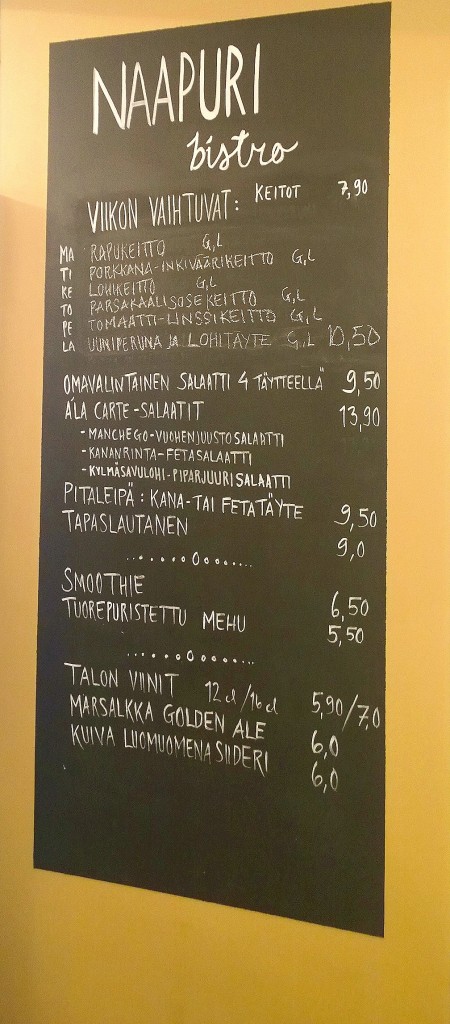 NAAPURI
bistro
VIIKON VAIHTUVAT: KEITOT 7,90
MA RAPUKEITTO G,L
TI PORKKANA-INKIVÄÄRIKEITTO G,L
KE LOHIKEITTO G,L
TO PARSAKAALISOSEKEITTO G,L
PE TOMAATTI-LINSSIKEITTO G,L
LA UUNIPERUNA JA LOHITÄYTE G,L 10,50
OMAVALINTAINEN SALAATTI 4 TÄYTTEELLÄ 9,50
A'LA CARTE-SALAATIT 13,90
- MANCHEGO-VUOHENJUUSTOSALAATTI
- KANANRINTA-FETASALAATTI
- KYLMÄSAVULOHI-PIPARJUURISALAATTI
PITALEIPÄ: KANA-TAI FETATÄYTE 9,50
TAPASLAUTANEN 9,0
SMOOTHIE 6,50
TUOREPURISTETTU MEHU 5,50
TALON VIINIT 12 cl/16 cl 5,90/7,0
MARSALKKA GOLDEN ALE 6,0
KUIVA LUOMUOMENASIIDERI 6,0